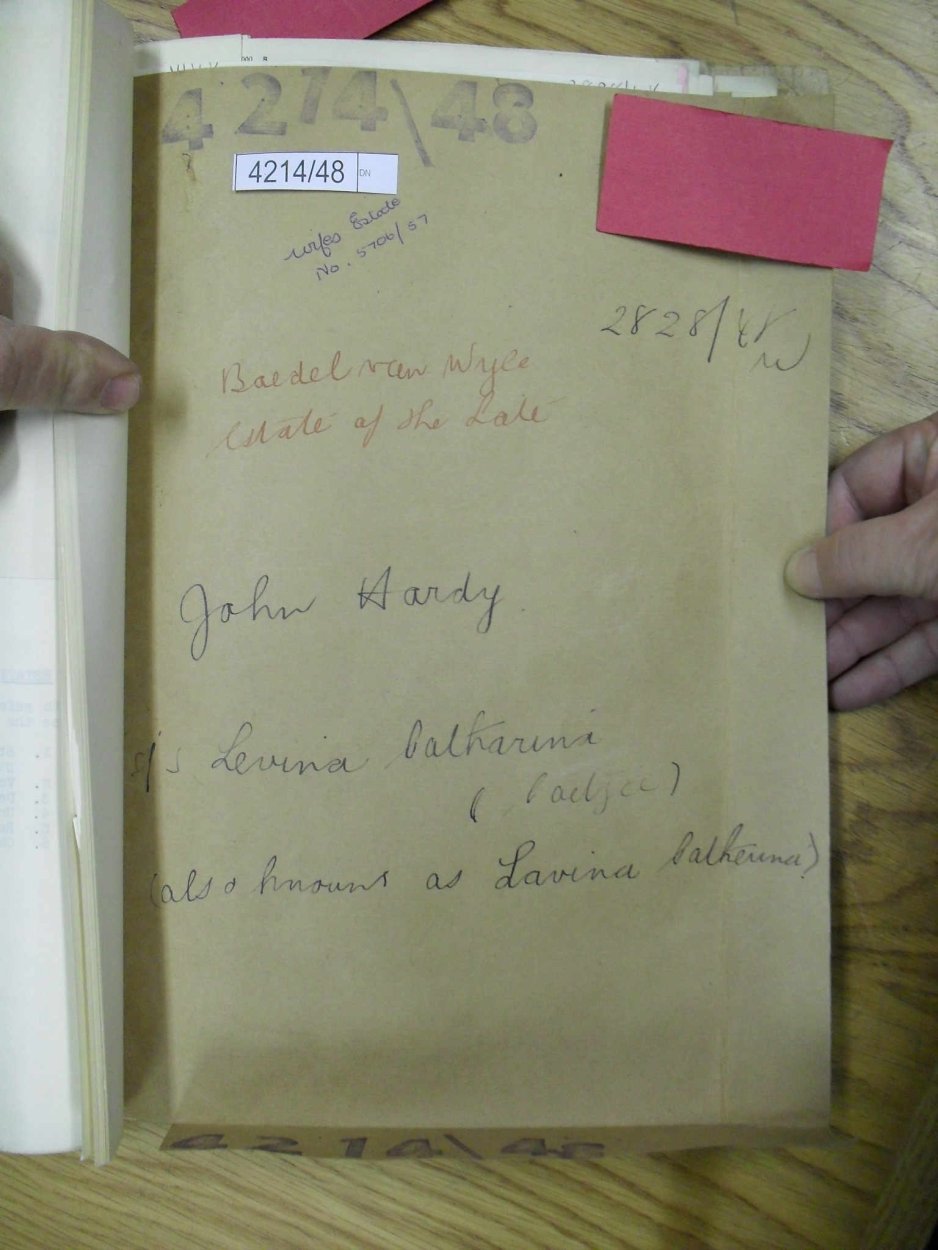 4214\48
4214/48 DN
Wifes Estate
No. 5706/57
2828/48
Boedel van Wyle
Estate of the Late
John Hardy
s/s Levina Catharina
(Coetzee)
(also known as Lavina Catherina)
4214\48